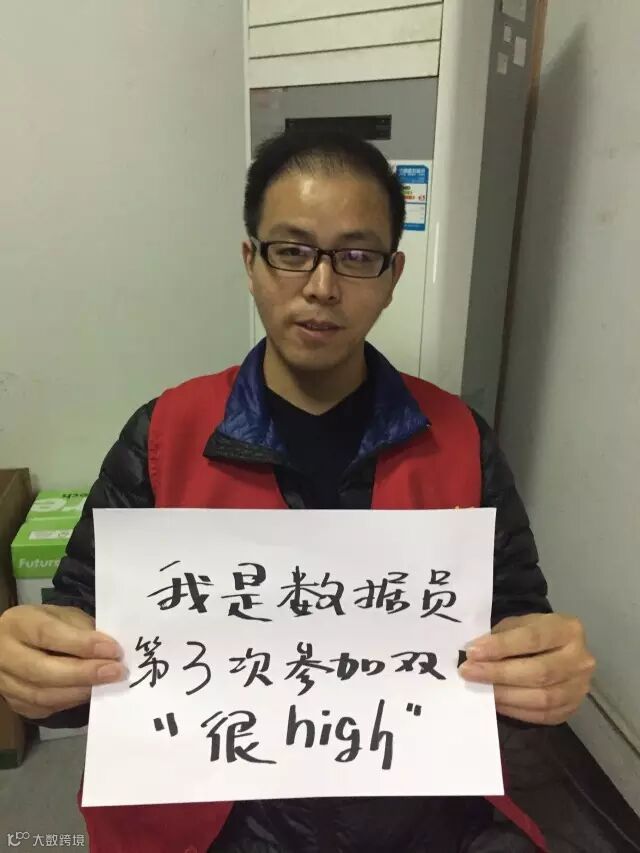 我是数据员
第3次参加双11
"很high"
Futur
大数跨境